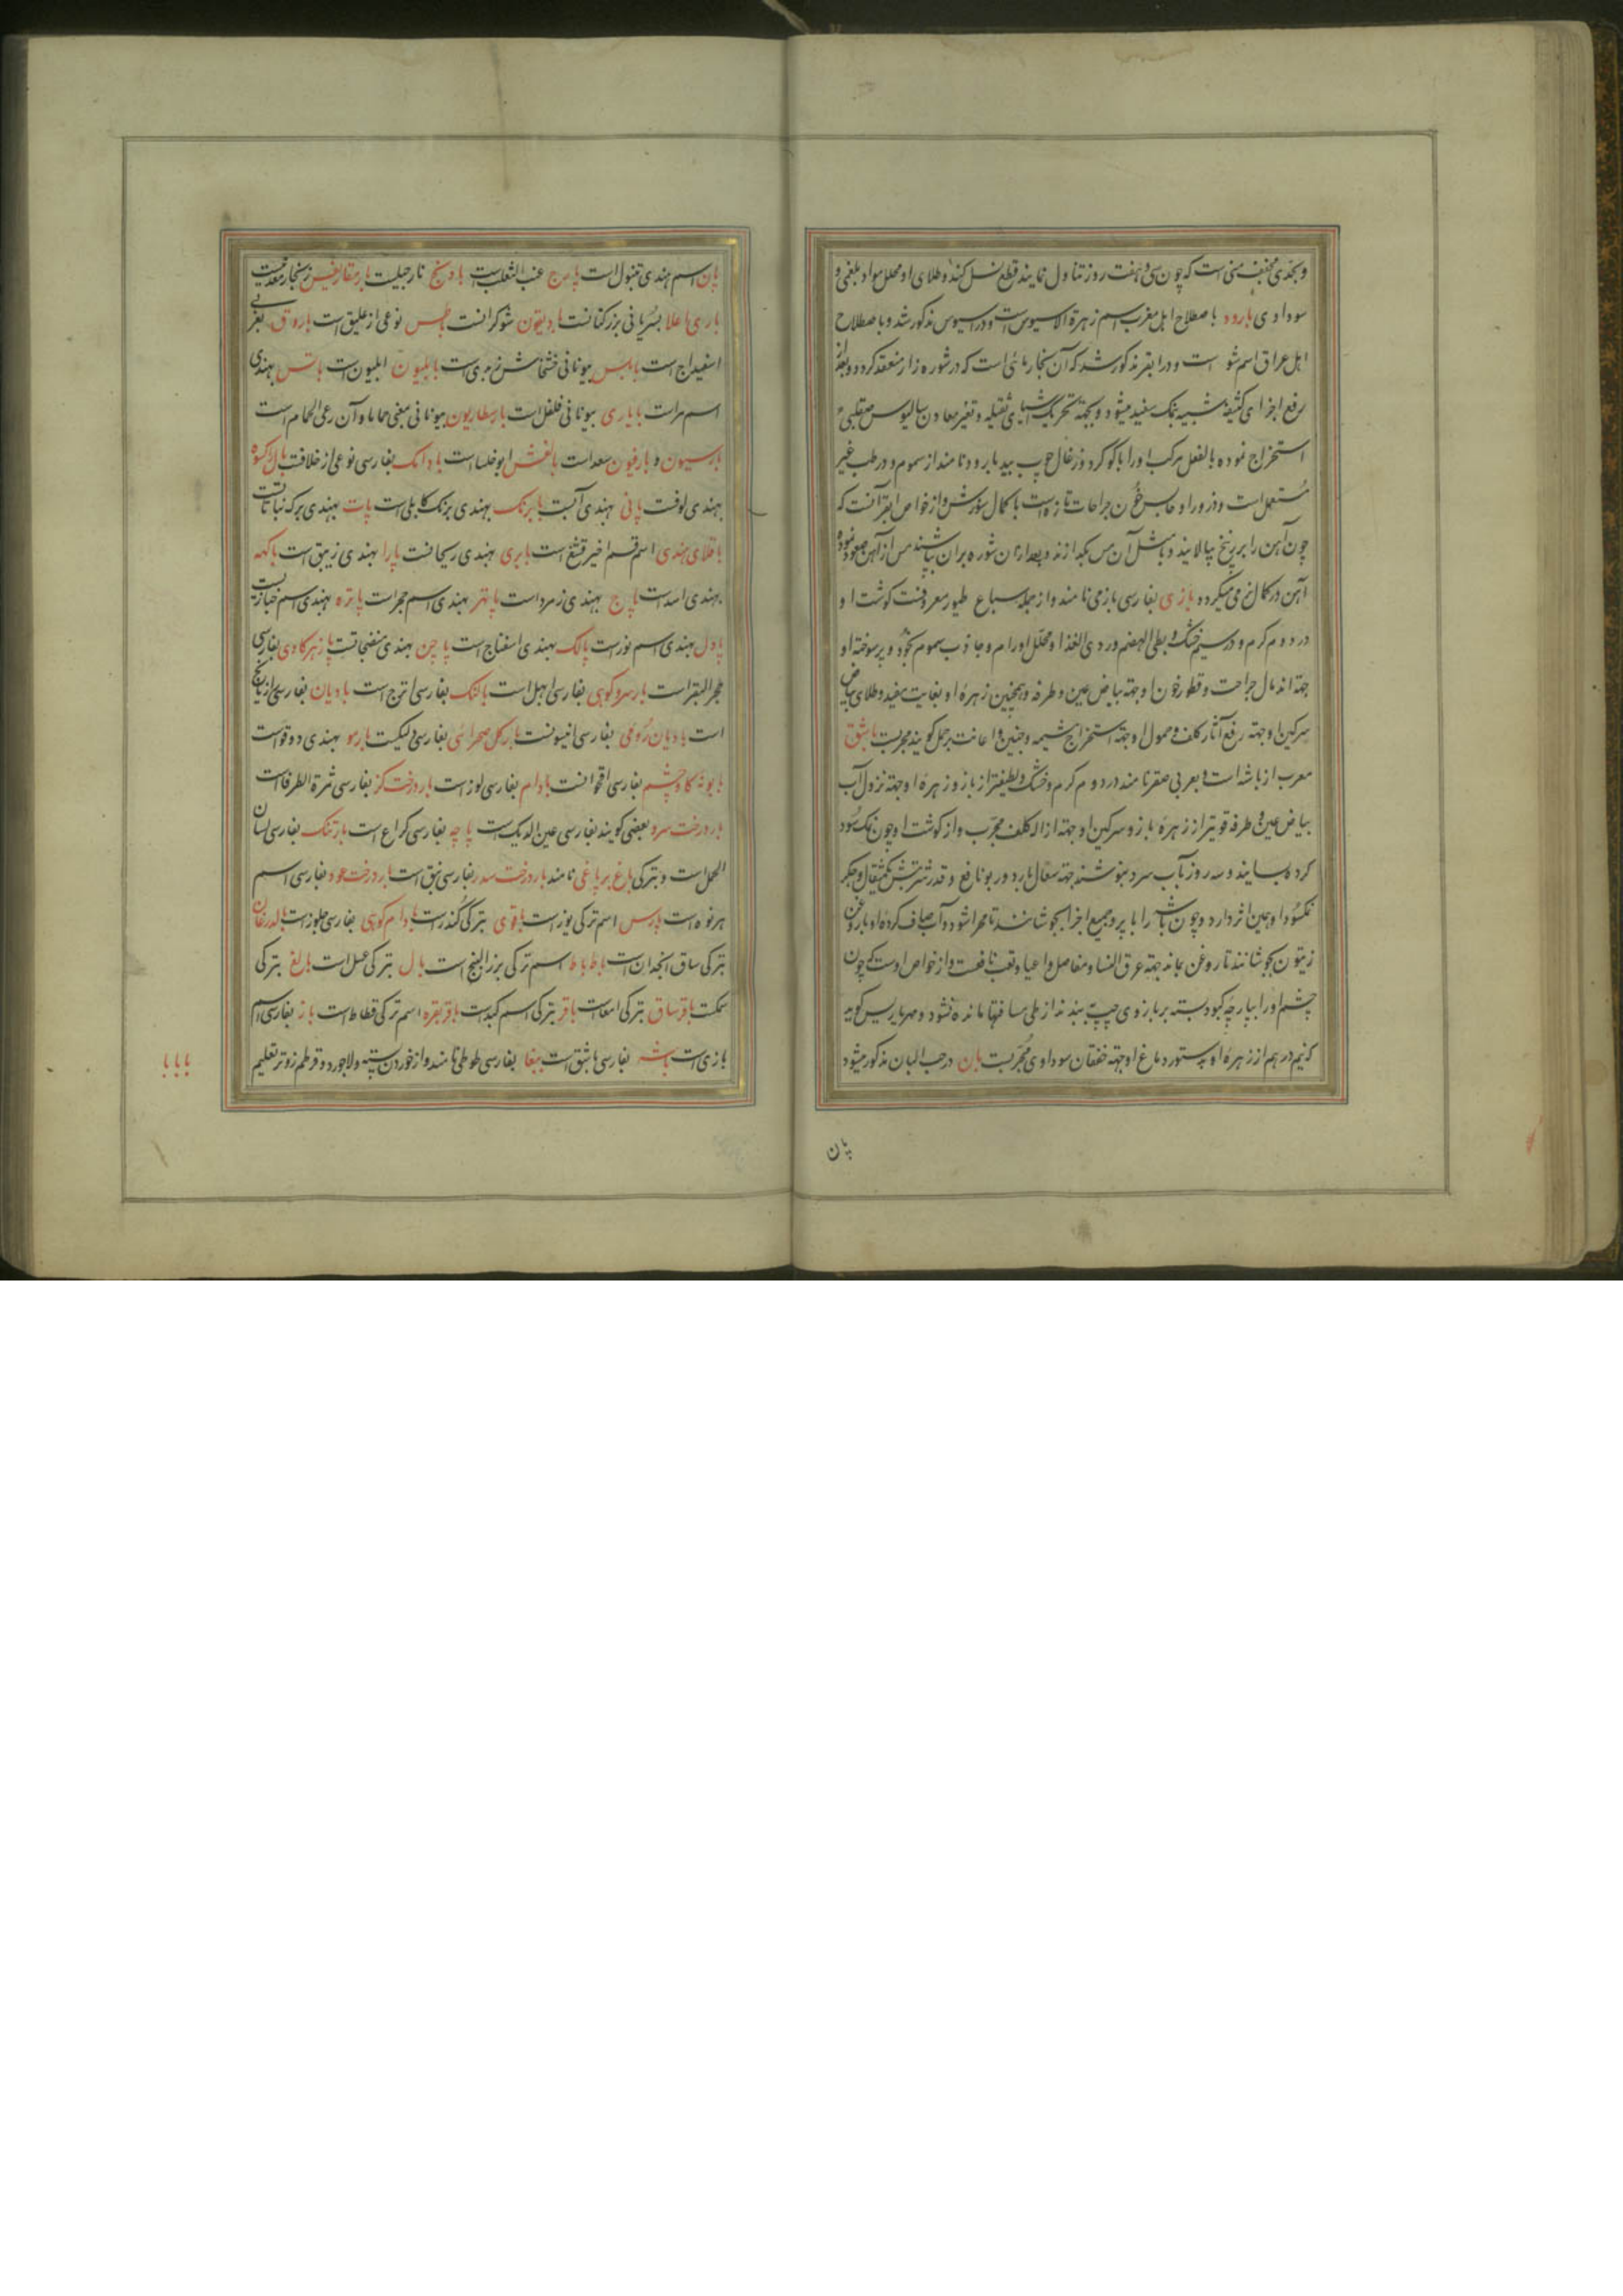 و بحدی مجفف منی است که چون سی و هفت روز تناول نمایند قطع نسل کند و طلای او محلل مواد بلغمی و
سوداوی بارود باصطلاح اهل مغرب اسم زهرة الاسیوس است و در اسیوس مذکور شد و باصطلاح
اهل عراق اسم شو است و در ابقر مذکور شد که آن بخار مائی است که در شوره زار منعقد کردد و بعد از
رفع اجزای کثیفه شبیه بنمک سفید میشود و بجهة تحریک اشیای ثقیله و تغیر معادن سالیوس صقلبی
استخراج نموده بالفعل مرکب او را با کوکرد و زغال چوب بید بارود نامند از سموم و در طب غیر
مستعمل است و ذرور او حابس خون جراحات تازه است با کمال سوزش و از خواص ابقر آنست که
چون آهن را بر برنج بپالایند و با مثل آن مس بکدازند و بعد از آن شوره بران بپاشند مس از آهن صعود نموده
آهن در کمال نرمی میکردد بازی بفارسی باز می نامند و از جمله سباع طیور معروفست کوشت او
در دوم کرم و در سیم خشک و بطی الهضم و ردی الغذا و محلل اورام و جاذب سموم بخود و پر سوخته او
جهة اندمال جراحت و قطور خون او جهة بیاض عین و طرفه و همچنین زهره او بغایت مفید و طلای بیاض
سرکین او جهة رفع آثار کلف و حمول او جهة استخراج مشیمه و جنین و اعانت بر حمل کویند مجربست باشق
معرب از باشه است و بعربی صقر نامند در دوم کرم و خشک و لطیفتر از باز و زهره او جهة نزول آب
بیاض عین و طرفه قویتر از زهره باز و سرکین او جهة ازاله کلف مجرب و از کوشت او چون نمک سود
کرده بسایند و سه روز بآب سرد بنوشند جهة سعال بارد و ربو نافع و قدر شربتش یکمثقال و جکر
نمکسود او همین اثر دارد و چون باشه را با پر و جمیع اجزا بجوشانند تا مهرا شود و آب صاف کرده او با روغن
زیتون بجوشانند تا روغن بماند جهة عرق النسا و مفاصل و اعیا و تعب نافعست و از خواص اوست که چون
چشم او را بپارچه کبود بسته بر بازوی چپ بندند از طی مسافتها مانده نشود و مهراریس کوید
که نیم درهم از زهره او بدستور دماغ او جهة خفقان سوداوی مجربست بان در حب البان مذکور میشود
پان
پان اسم هندی تنبول است عنب الثعلب است بادنج نارجیلست زنجار معدنیست
باری اعلا بسریانی بزر کتانست شوکرانست باطس نوعی از علیق است باروق بعربی
اسفیداج است بیونانی خشخاش زبدی است بابلیون ابلیون است هندی
اسم مرات است باباری بیونانی فلفل است بارسطاریون بیونانی بمعنی حمامات و آن رعی الحمام است
و سعد است ابوخلسا است بادامک بفارسی نوعی از خلافست
بهندی لوفست پانی بهندی آبست بابرنک بهندی برنک کابلی است پات بهندی برک نباتاتست
باقلای هندی اسم قسم اخیر است بابری بهندی ریحانست پارا بهندی زیبق است باکهه
بهندی اسد است پاچ بهندی زمرد است پاتهر بهندی اسم حجر است پاتره بهندی اسم خبازیست
پاول بهندی اسم است پالک بهندی اسفناج است بهندی است پازهر کاوی بفارسی
حجر البقر است بار سرو کوهی بفارسی ابهل است بالنک بفارسی اترج است بادیان بفارسی رازیانج
است بادیان رومی بفارسی انیسونست بار کل صحرائی بفارسی دلیکست بهندی دوقو است
بابونه کاوچشم بفارسی اقحوانست بادام بفارسی لوز است بار درخت کز بفارسی ثمرة الطرفا است
بار درخت سرو بعضی کویند بفارسی عین الدیک است پاچه بفارسی کراع است بارتنک بفارسی لسان
الحمل است و بترکی باغ یرپاغی نامند بار درخت سدر بفارسی نبق است بار درخت عود بفارسی اسم
هرنوه است پارس اسم ترکی یوز است باقوی بترکی کندر است بادام کوهی بفارسی جلوز است بالدرغان
بترکی ساق انجدان است باط باط اسم ترکی بزر البنج است بال بترکی عسل است بالغ بترکی
سمکست باقرساق بترکی امعا است باقر بترکی اسم کبدست باقرقره اسم ترکی قطاط است باز بفارسی اسم
بازی است باشه بفارسی باشق است ببغا بفارسی طوطی نامند و از خوردن پسته و لاجورد و قرطم زودتر تعلیم
با با با